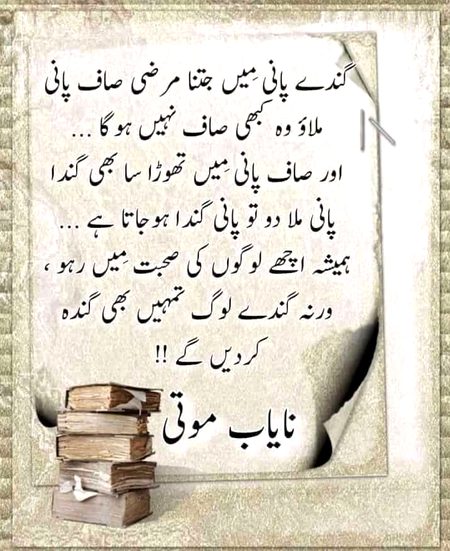 گندے پانی میں جتنا مرضی صاف پانی
ملاؤ وہ کبھی صاف نہیں ہو گا ...
اور صاف پانی میں تھوڑا سا بھی گندا
پانی ملا دو تو پانی گندا ہو جاتا ہے ...
ہمیشہ اچھے لوگوں کی صحبت میں رہو ،
ورنہ گندے لوگ تمہیں بھی گندہ
کر دیں گے !!
نایاب موتی